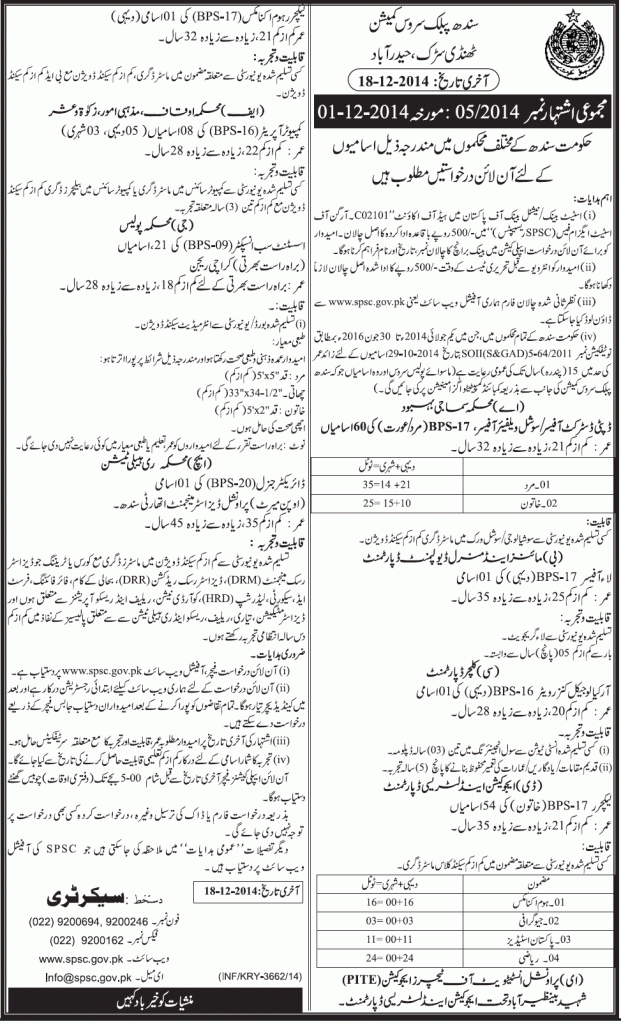 سندھ پبلک سروس کمیشن
ٹھنڈی سڑک، حیدرآباد
آخری تاریخ: 18-12-2014
مجموعی اشتہار نمبر 05/2014 : مورخہ 01-12-2014
حکومت سندھ کے مختلف محکموں میں مندرجہ ذیل اسامیوں
کے لئے آن لائن درخواستیں مطلوب ہیں
اہم ہدایات:
(i) اسٹیٹ بینک/نیشنل بینک آف پاکستان میں ہیڈ آف اکاؤنٹ "C02101۔ آرگن آف
اسٹیٹ ایگزام فیس (SPSC رسیپٹس)" میں -/500 روپے باقاعدہ ادا کردہ اصل چالان۔ امیدوار
کو برائے آن لائن درخواست ایپلی کیشن میں بینک برانچ کا چالان نمبر، تاریخ اور نام فراہم کرنا ہوگا۔
(ii) امیدوار کو انٹرویو سے قبل تحریری ٹیسٹ کے وقت -/500 روپے کا ادا شدہ اصل چالان لازماً
دکھانا ہوگا۔
(iii) نظر ثانی شدہ چالان فارم ہماری آفیشل ویب سائٹ یعنی www.spsc.gov.pk سے
ڈاؤن لوڈ کیا جاسکتا ہے۔
(iv) حکومت سندھ کے تمام محکموں میں، جن میں یکم جولائی 2014ء تا 30 جون 2016ء بمطابق
نوٹیفکیشن نمبر SOII(S&GAD)5-64/2011 بتاریخ 29-10-2014 اسامیوں کے لئے زائد عمر
کی حد میں 15 (پندرہ) سال تک کی عمومی رعایت ہے (ماسوائے پولیس سروس اور وہ اسامیاں جو کہ سندھ
پبلک سروس کمیشن کی جانب سے بذریعہ کمبائنڈ کمپیٹیٹو ایگزامینیشن پر کی جائیں گی)۔
(اے) محکمہ سماجی بہبود
ڈپٹی ڈسٹرکٹ آفیسر/سوشل ویلفیئر آفیسر، BPS-17 (مرد/عورت) کی 60 اسامیاں
عمر: کم از کم 21، زیادہ سے زیادہ 32 سال۔
دیہی + شہری = ٹوٹل
01۔ مرد 21+ 14=35
02۔ خاتون 10+15 =25
قابلیت:
کسی تسلیم شدہ یونیورسٹی سے سوشیالوجی/سوشل ورک میں ماسٹر ڈگری کم از کم سیکنڈ ڈویژن۔
(بی) مائنز اینڈ منرل ڈیولپمنٹ ڈپارٹمنٹ
لاء آفیسر BPS-17 (دیہی) کی 01 اسامی
عمر: کم از کم 25، زیادہ سے زیادہ 35 سال
قابلیت و تجربہ:
تسلیم شدہ یونیورسٹی سے لاء گریجویٹ۔
بار سے کم از کم 05 (پانچ) سال سے وابستہ۔
(سی) کلچر ڈپارٹمنٹ
آرکیالوجیکل کنزرویٹر BPS-16 (دیہی) کی 01 اسامی
عمر: کم از کم 20، زیادہ سے زیادہ 28 سال
قابلیت و تجربہ:
(i) کسی تسلیم شدہ انسٹی ٹیوشن سے سول انجینئرنگ میں تین (03) سالہ ڈپلومہ۔
(ii) قدیم مقامات/یادگاریں/عمارات کی تعمیر محفوظ بنانے کا پانچ (5) سالہ تجربہ۔
(ڈی) ایجوکیشن اینڈ لٹریسی ڈپارٹمنٹ
لیکچرر BPS-17 (خاتون) کی 54 اسامیاں
عمر: کم از کم 21، زیادہ سے زیادہ 35 سال
قابلیت:
کسی تسلیم شدہ یونیورسٹی سے متعلقہ مضمون میں کم از کم سیکنڈ کلاس ماسٹر ڈگری۔
مضمون دیہی + شہری = ٹوٹل
01۔ ہوم اکنامکس 16+00 =16
02۔ جیوگرافی 03+00 =03
03۔ پاکستان اسٹڈیز 11+00 =11
04۔ ریاضی 24+00 =24
(ای) پراونشل انسٹیٹیوٹ آف ٹیچرز ایجوکیشن (PITE)
شہید بینظیر آباد تحت ایجوکیشن اینڈ لٹریسی ڈپارٹمنٹ۔
لیکچرر ہوم اکنامکس (BPS-17) کی 01 اسامی (دیہی)
عمر کم از کم 21، زیادہ سے زیادہ 32 سال۔
قابلیت و تجربہ:
کسی تسلیم شدہ یونیورسٹی سے متعلقہ مضمون میں ماسٹر ڈگری، کم از کم سیکنڈ ڈویژن مع بی ایڈ کم از کم سیکنڈ
ڈویژن۔
(ایف) محکمہ اوقاف، مذہبی امور، زکوٰۃ و عشر
کمپیوٹر آپریٹر (BPS-16) کی 08 اسامیاں (05 دیہی، 03 شہری)
عمر: کم از کم 22، زیادہ سے زیادہ 28 سال۔
قابلیت و تجربہ:
کسی تسلیم شدہ یونیورسٹی سے کمپیوٹر سائنس میں ماسٹر ڈگری یا کمپیوٹر سائنس میں بیچلرز ڈگری کم از کم سیکنڈ
ڈویژن مع کم از کم تین (3) سالہ متعلقہ تجربہ۔
(جی) محکمہ پولیس
اسسٹنٹ سب انسپکٹر (BPS-09) کی 21، اسامیاں
(براہ راست بھرتی) کراچی ریجن
عمر: براہ راست بھرتی کے لئے کم از کم 18، زیادہ سے زیادہ 28 سال۔
قابلیت:
(i) تسلیم شدہ بورڈ/یونیورسٹی سے انٹرمیڈیٹ سیکنڈ ڈویژن۔
طبعی معیار:
امیدوار عمدہ ذہنی و طبعی صحت رکھتا ہو اور مندرجہ ذیل شرائط پر پورا اترتا ہو:
مرد: قد "5'x5 (کم از کم)
چھاتی۔ "33"x34-1/2 (کم از کم)
خاتون: قد "5'x2 (کم از کم)
اچھی صحت کی حامل ہوں۔
نوٹ: براہ راست تقرر کے لئے امیدواروں کو عمر، تعلیم یا طبعی معیار میں کوئی رعایت نہیں دی جائے گی۔
(ایچ) محکمہ ری ہیبلی ٹیشن
ڈائریکٹر جنرل (BPS-20) کی 01 اسامی
(اوپن میرٹ) پراونشل ڈیزاسٹر مینجمنٹ اتھارٹی سندھ۔
عمر: کم از کم 35، زیادہ سے زیادہ 45 سال۔
قابلیت و تجربہ:
کسی تسلیم شدہ یونیورسٹی سے کم از کم سیکنڈ ڈویژن میں ماسٹرز ڈگری مع کورس یا ٹریننگ جو ڈیزاسٹر
رسک مینجمنٹ (DRM)، ڈیزاسٹر رسک ریڈکشن (DRR)، بحالی کے کام، فائر فائٹنگ، فرسٹ
ایڈ، سیکورٹی، لیڈرشپ (HRD)، کوآرڈی نیشن، ریلیف اینڈ ریسکیو آپریشنز سے متعلق ہوں اور
ڈیزاسٹر مٹیگیشن، تیاری، ریلیف، ریسکیو اور ری ہیبلی ٹیشن سے متعلق پالیسیز کے نفاذ میں کم از کم
دس سالہ انتظامی تجربہ رکھتے ہوں۔
ضروری ہدایات۔
(i) آن لائن درخواست فیچر، آفیشل ویب سائٹ www.spsc.gov.pk پر دستیاب ہے۔
(ii) آن لائن درخواست کے لئے ہماری ویب سائٹ کیلئے ابتدائی رجسٹریشن درکار ہے اور بعد
میں کینڈیڈیچر تیار ہوگا۔ تمام تقاضوں کو پورا کرنے کے بعد امیدواران دستیاب جابس فیچر کے ذریعے
درخواست دے سکتے ہیں۔
(iii) اشتہار کی آخری تاریخ پر امیدوار مطلوبہ عمر، قابلیت اور تجربہ کا مع متعلقہ سرٹیفکیٹس حامل ہو۔
(iv) تجربہ کا شمار اسامی کے لئے درکار کم از کم تعلیمی قابلیت حاصل کرنے کی تاریخ سے کیا جائے گا۔
آن لائن ایپلی کیشنز فیچر آخری تاریخ سے قبل شام 5-00 بجے تک (دفتری اوقات) چوبیس گھنٹے
دستیاب ہوگا۔
بذریعہ درخواست فارم یا ڈاک کی ترسیل وغیرہ، درخواست کردہ کسی بھی درخواست پر
توجہ نہیں دی جائے گی۔
دیگر تفصیلات "عمومی ہدایات" میں ملاحظہ کی جاسکتی ہیں جو SPSC کی آفیشل
ویب سائٹ پر دستیاب ہیں۔
آخری تاریخ: 18-12-2014
دستخط: سیکرٹری
فون نمبر۔ 9200246 ,9200694 (022)
فیکس نمبر۔ 9200162 (022)
ویب سائٹ۔ www.spsc.gov.pk
ای میل۔ Info@spsc.gov.pk
(INF/KRY-3662/14)
منشیات کو خیرباد کہیں